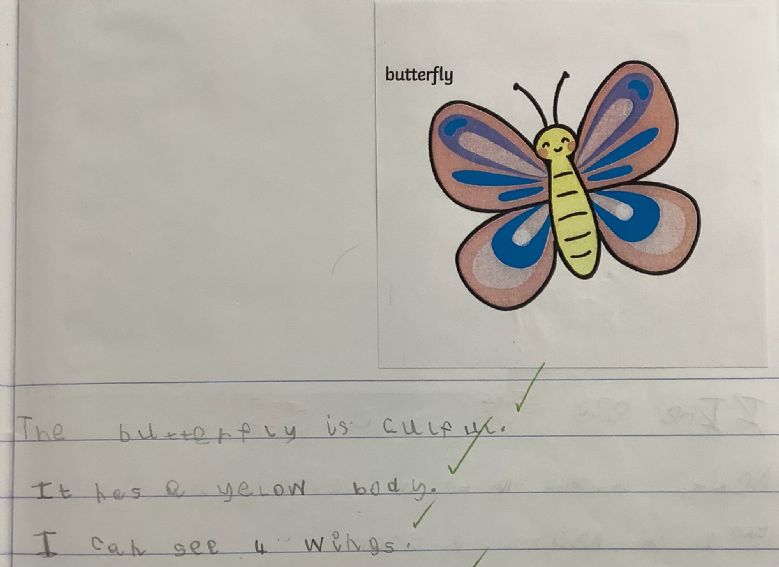 butterfly
The butterfly is culful.
It has a yelow body.
I can see 4 wings.